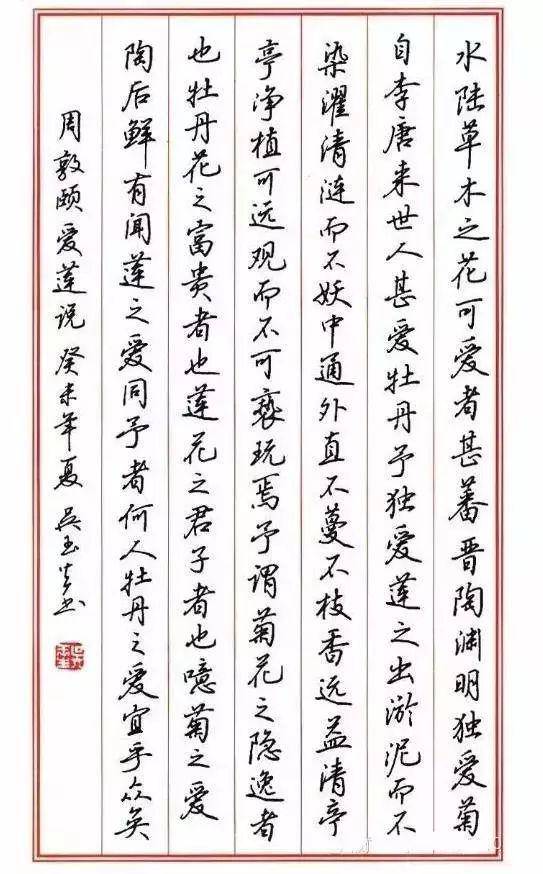 水陆草木之花可爱者甚蕃晋陶渊明独爱菊
自李唐来世人甚爱牡丹予独爱莲之出淤泥而不
染濯清涟而不妖中通外直不蔓不枝香远益清亭
亭净植可远观而不可亵玩焉予谓菊花之隐逸者
也牡丹花之富贵者也莲花之君子者也噫菊之爱
陶后鲜有闻莲之爱同予者何人牡丹之爱宜乎众矣
周敦颐爱莲说 癸未年夏 吴玉生书